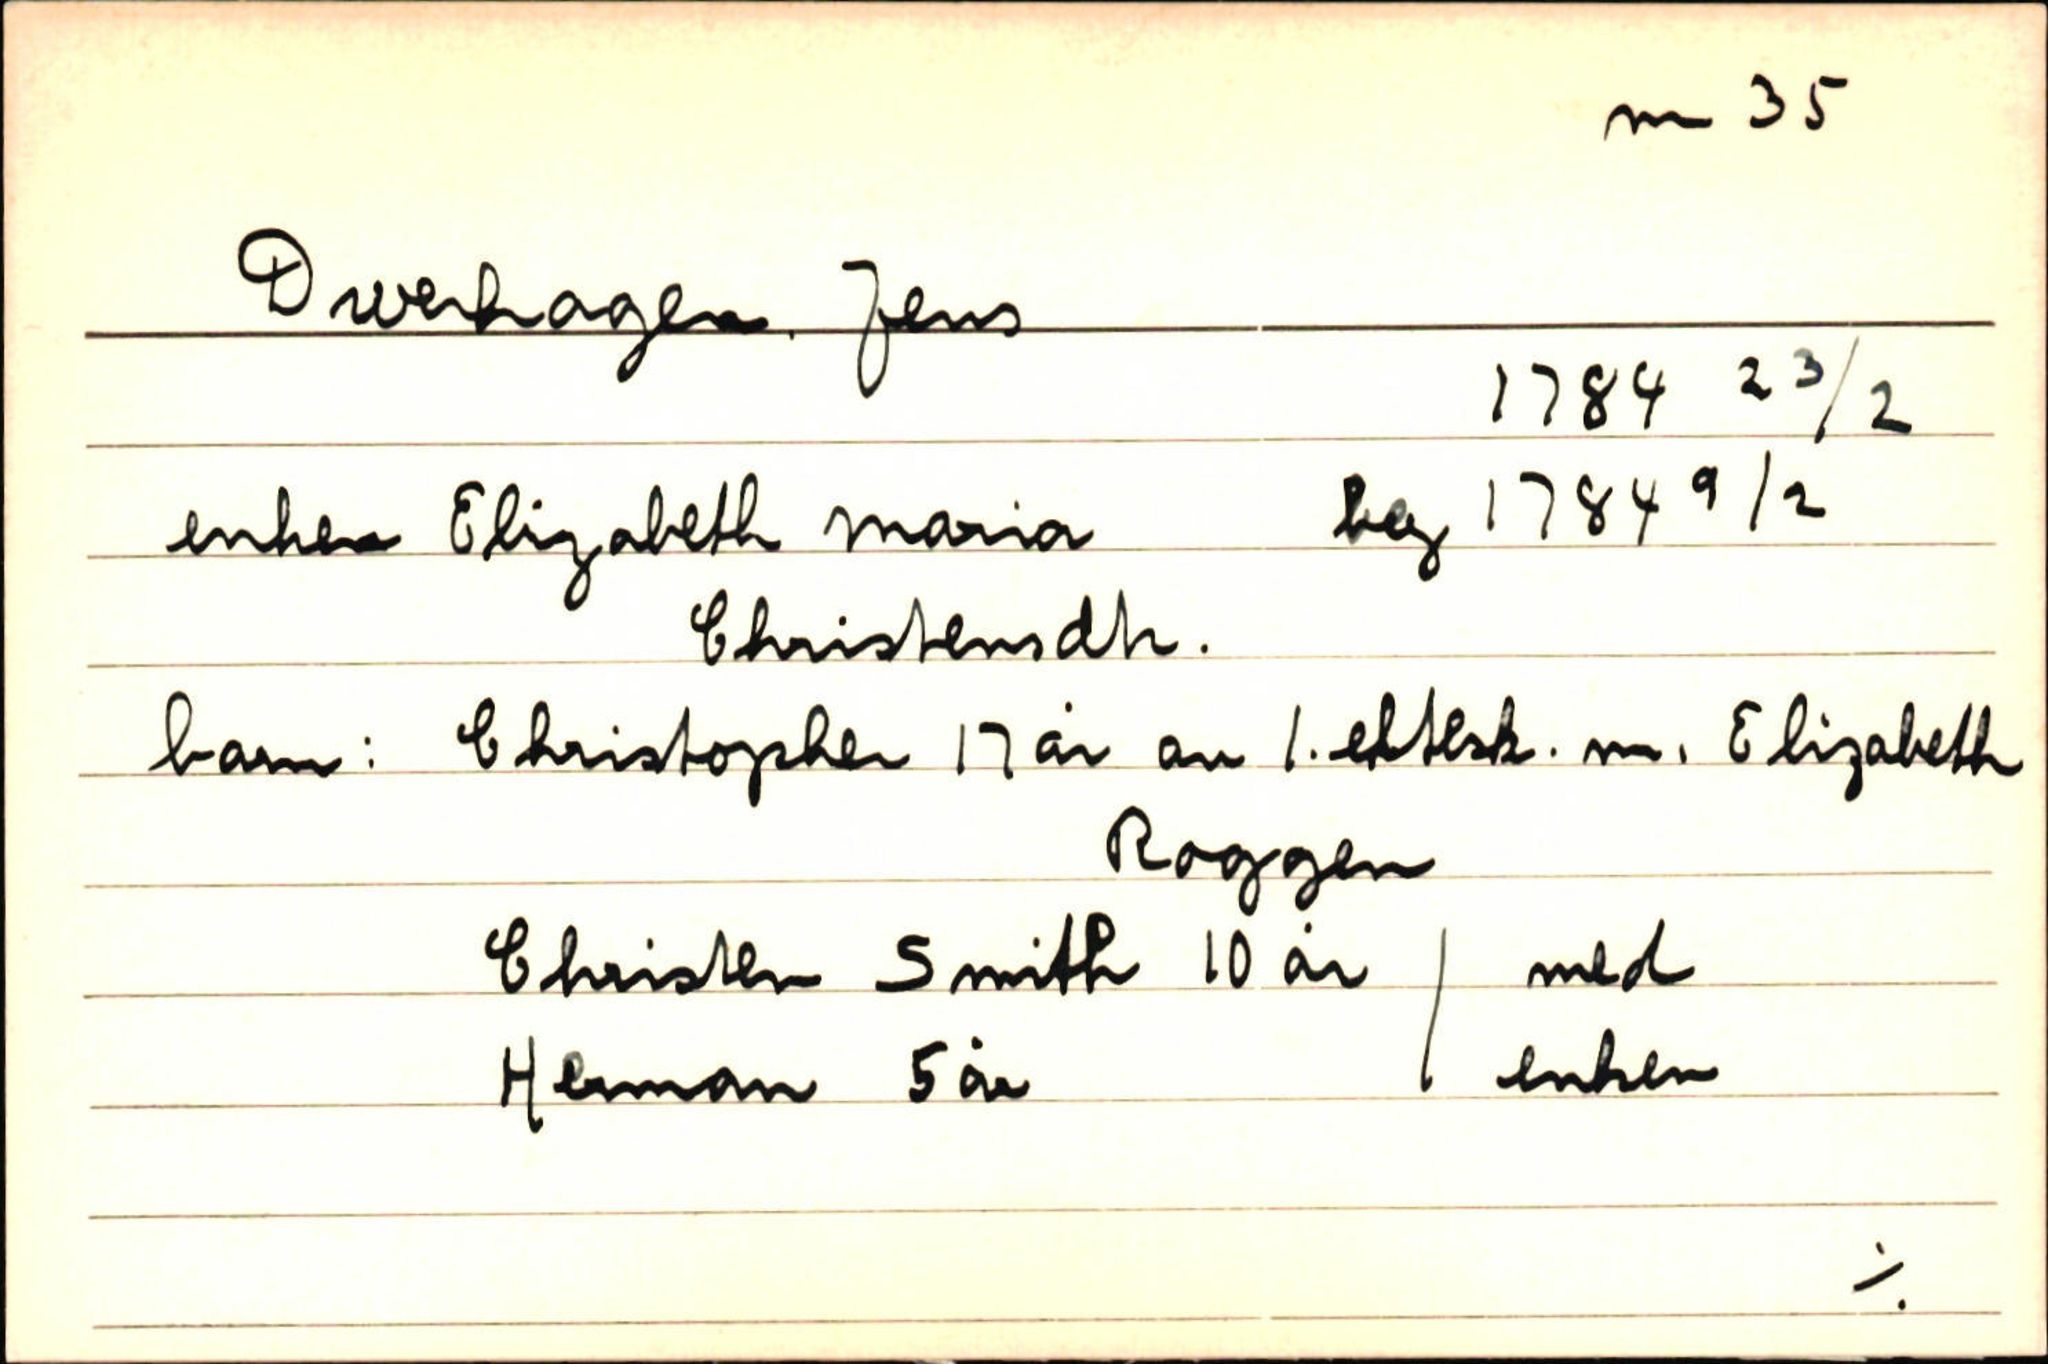 m 35
Dwerhagen, Jens
1784 23/2
enken Elizabeth Maria beg 1784 9/2
Christensdtr.
barn: Christopher 17 år av 1. ektesk. m. Elizabeth
Roggen
Christen Smith 10 år / med
Herman 5 år / enken
./.